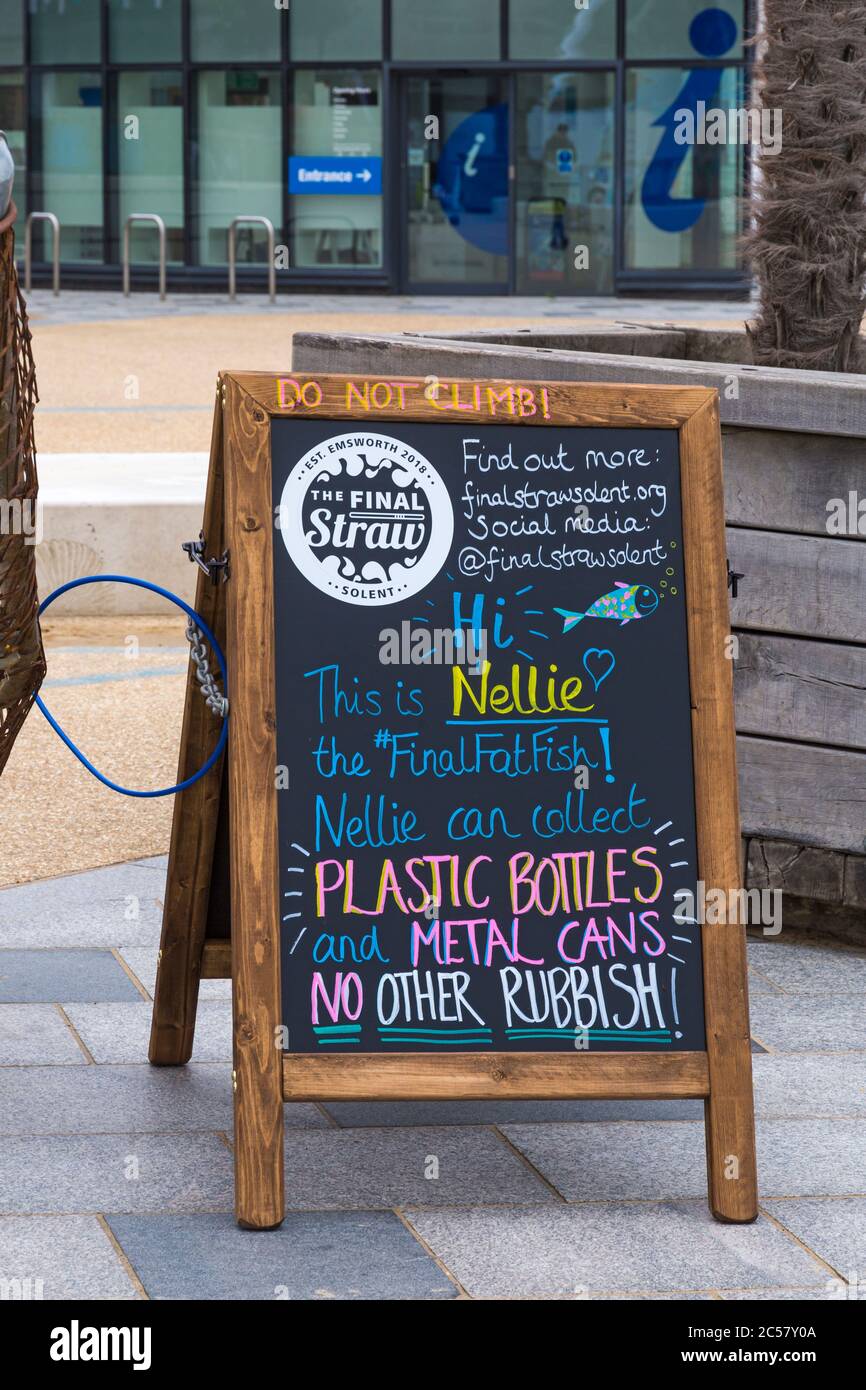 Entrance →
DO NOT CLIMB!
EST. EMSWORTH 2018
THE FINAL
Straw
SOLENT
Find out more:
finalstrawsolent.org
Social media:
@finalstrawsolent
Hi
This is Nellie
the #FinalFatFish!
Nellie can collect
PLASTIC BOTTLES
and METAL CANS
NO OTHER RUBBISH!
alamy
Image ID: 2C57Y0A
www.alamy.com